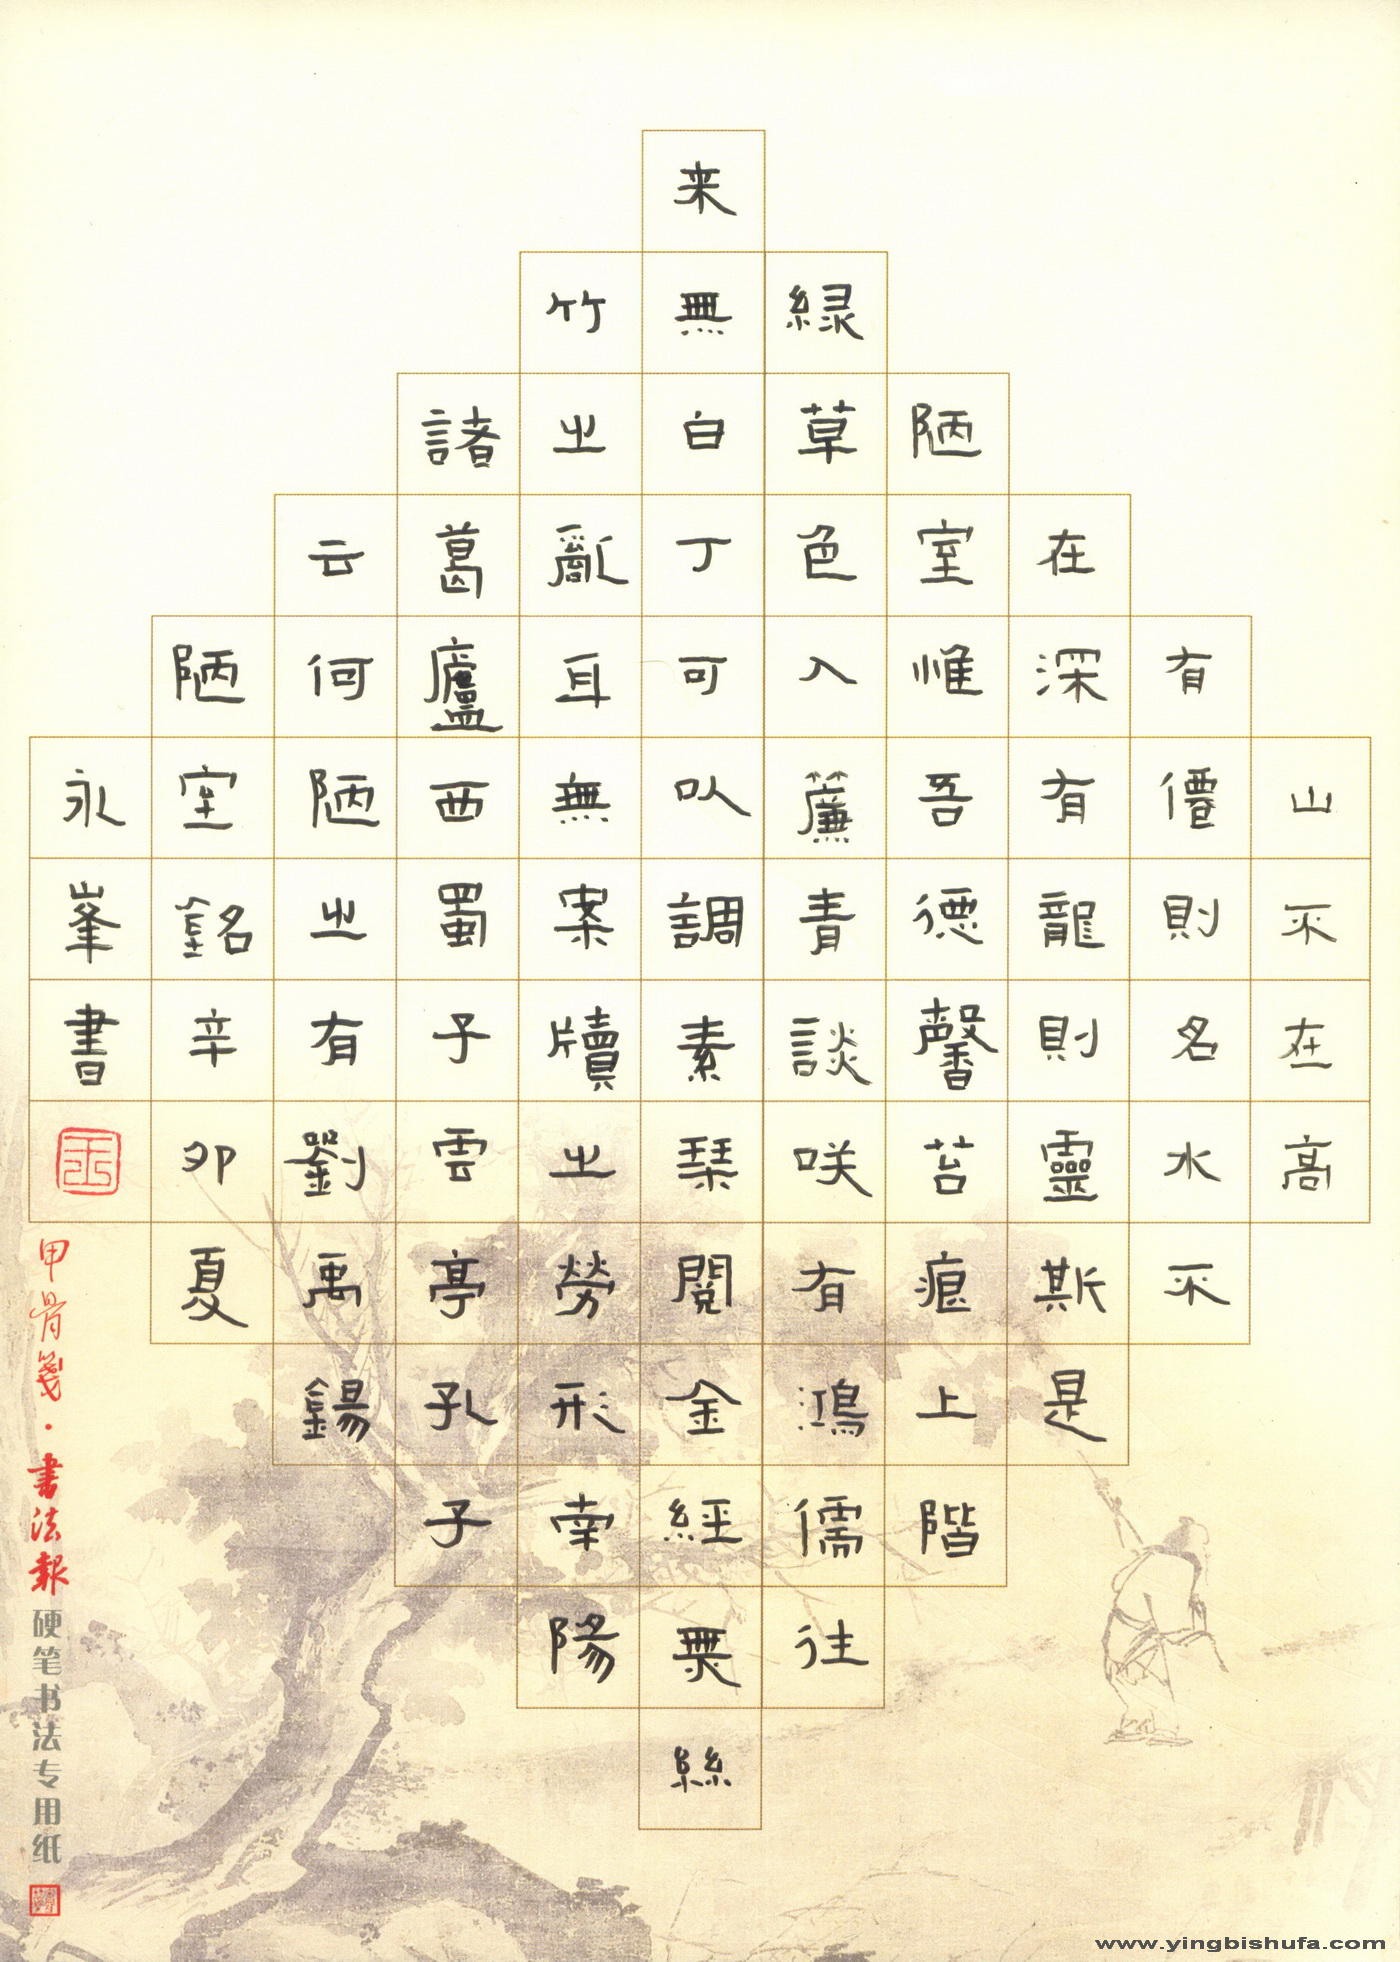 山不在高
有僊則名水不
在深有龍則靈斯是
陋室惟吾德馨苔痕上階
緑草色入簾青談咲有鴻儒往
来無白丁可以調素琴閱金經無絲
竹之亂耳無案牘之勞形南陽
諸葛廬西蜀子雲亭孔子
云何陋之有劉禹錫
陋室銘辛卯夏
永峯書
甲骨箋·書法報
硬笔书法专用纸
www.yingbishufa.com